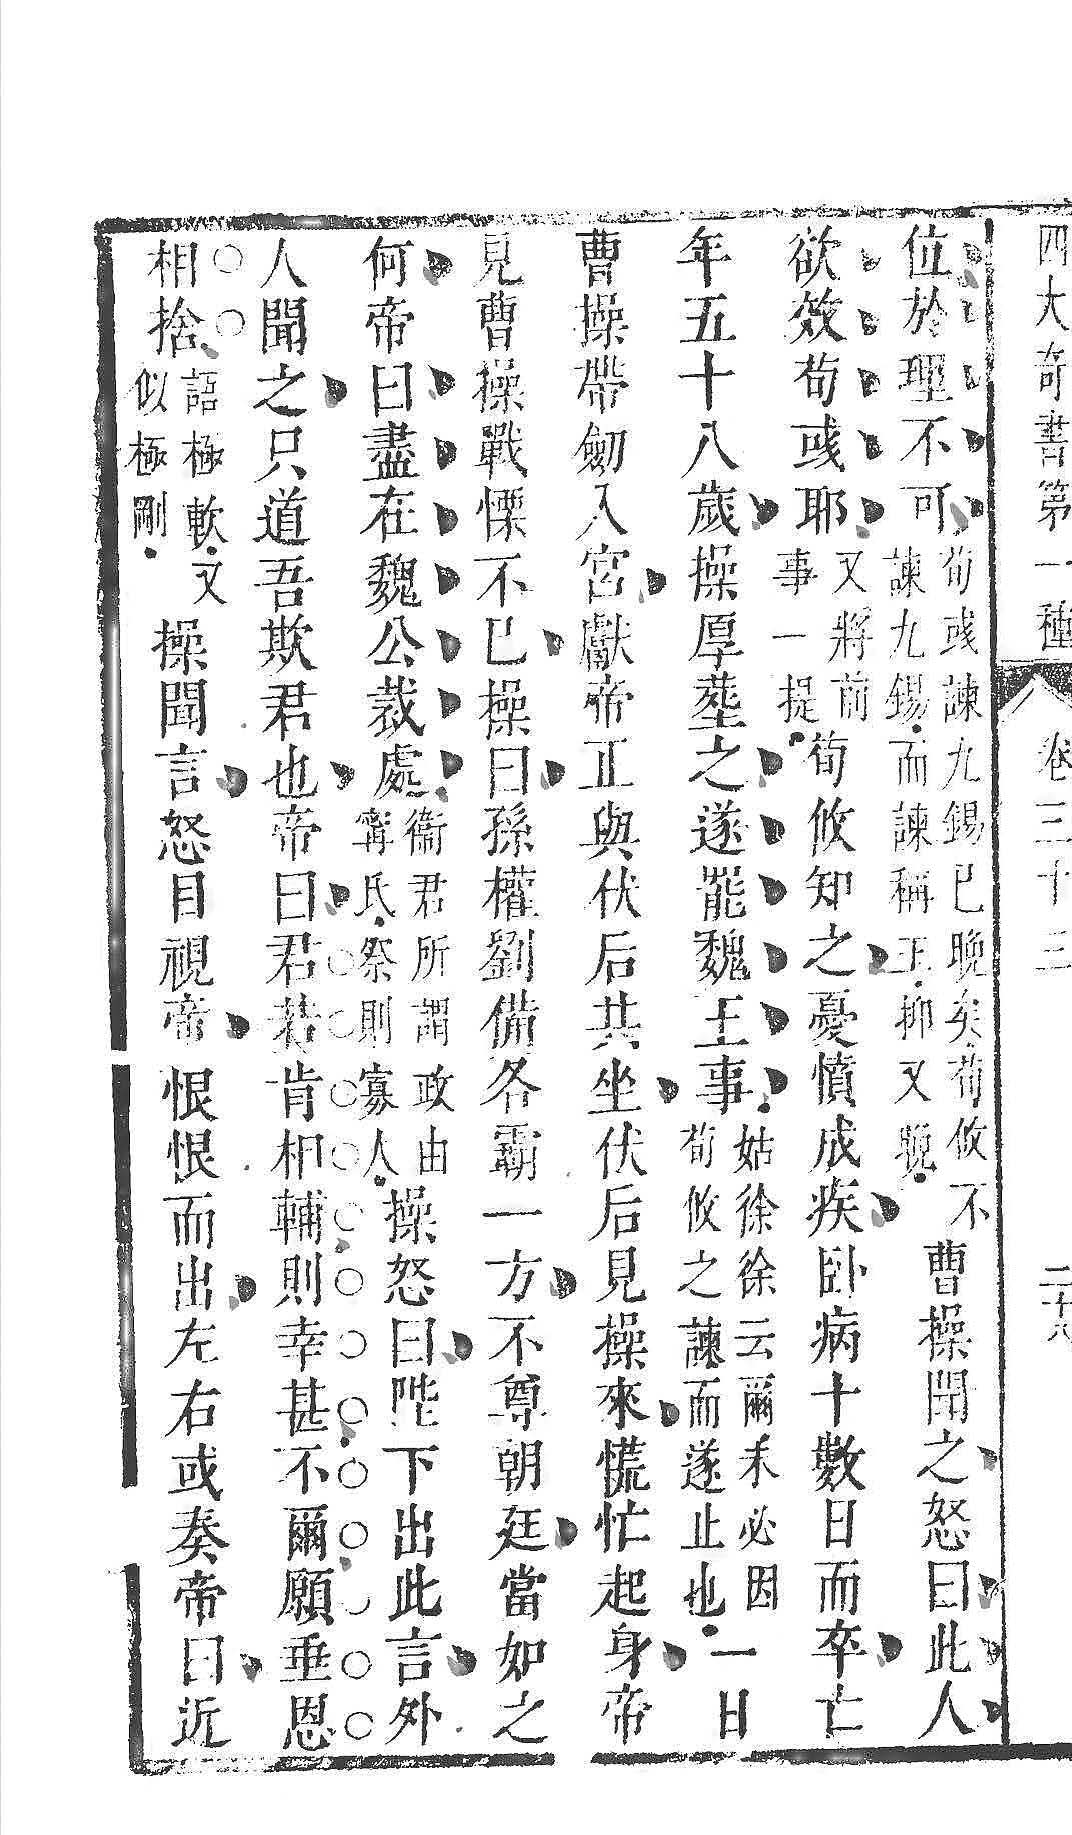 四大奇書第一種 卷三十三 二十八
位於理不可荀彧諫九錫已晚矣荀攸不諫九錫而諫稱王抑又晚曹操聞之怒曰此人
欲效荀彧耶又將前事一提荀攸知之憂憤成疾卧病十數日而卒亡
年五十八歲操厚葬之遂罷魏王事姑徐徐云爾未必因荀攸之諫而遂止也一日
曹操帶劒入宮獻帝正與伏后共坐伏后見操來慌忙起身帝
見曹操戰慄不已操曰孫權劉備各霸一方不尊朝廷當如之
何帝曰盡在魏公裁處衞君所謂政由甯氏祭則寡人操怒曰陛下出此言外
人聞之只道吾欺君也帝曰君若肯相輔則幸甚不爾願垂恩
相捨語極軟又似極剛操聞言怒目視帝恨恨而出左右或奏帝曰近